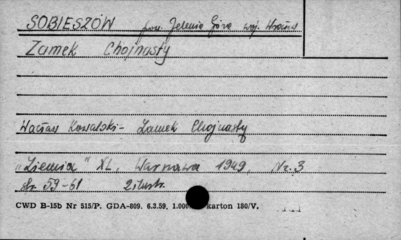 SOBIESZÓW pow. Jelenia Góra woj. Wrocław
Zamek Chojnasty
Wacław Kowalski - Zamek Chojnasty
"Ziemia" XL, Warszawa 1949, Nr. 3
str. 59-61 2 ilustr.
CWD B-15b Nr 515/P. GDA-809. 6.3.59. 1.000 karton 180/V.